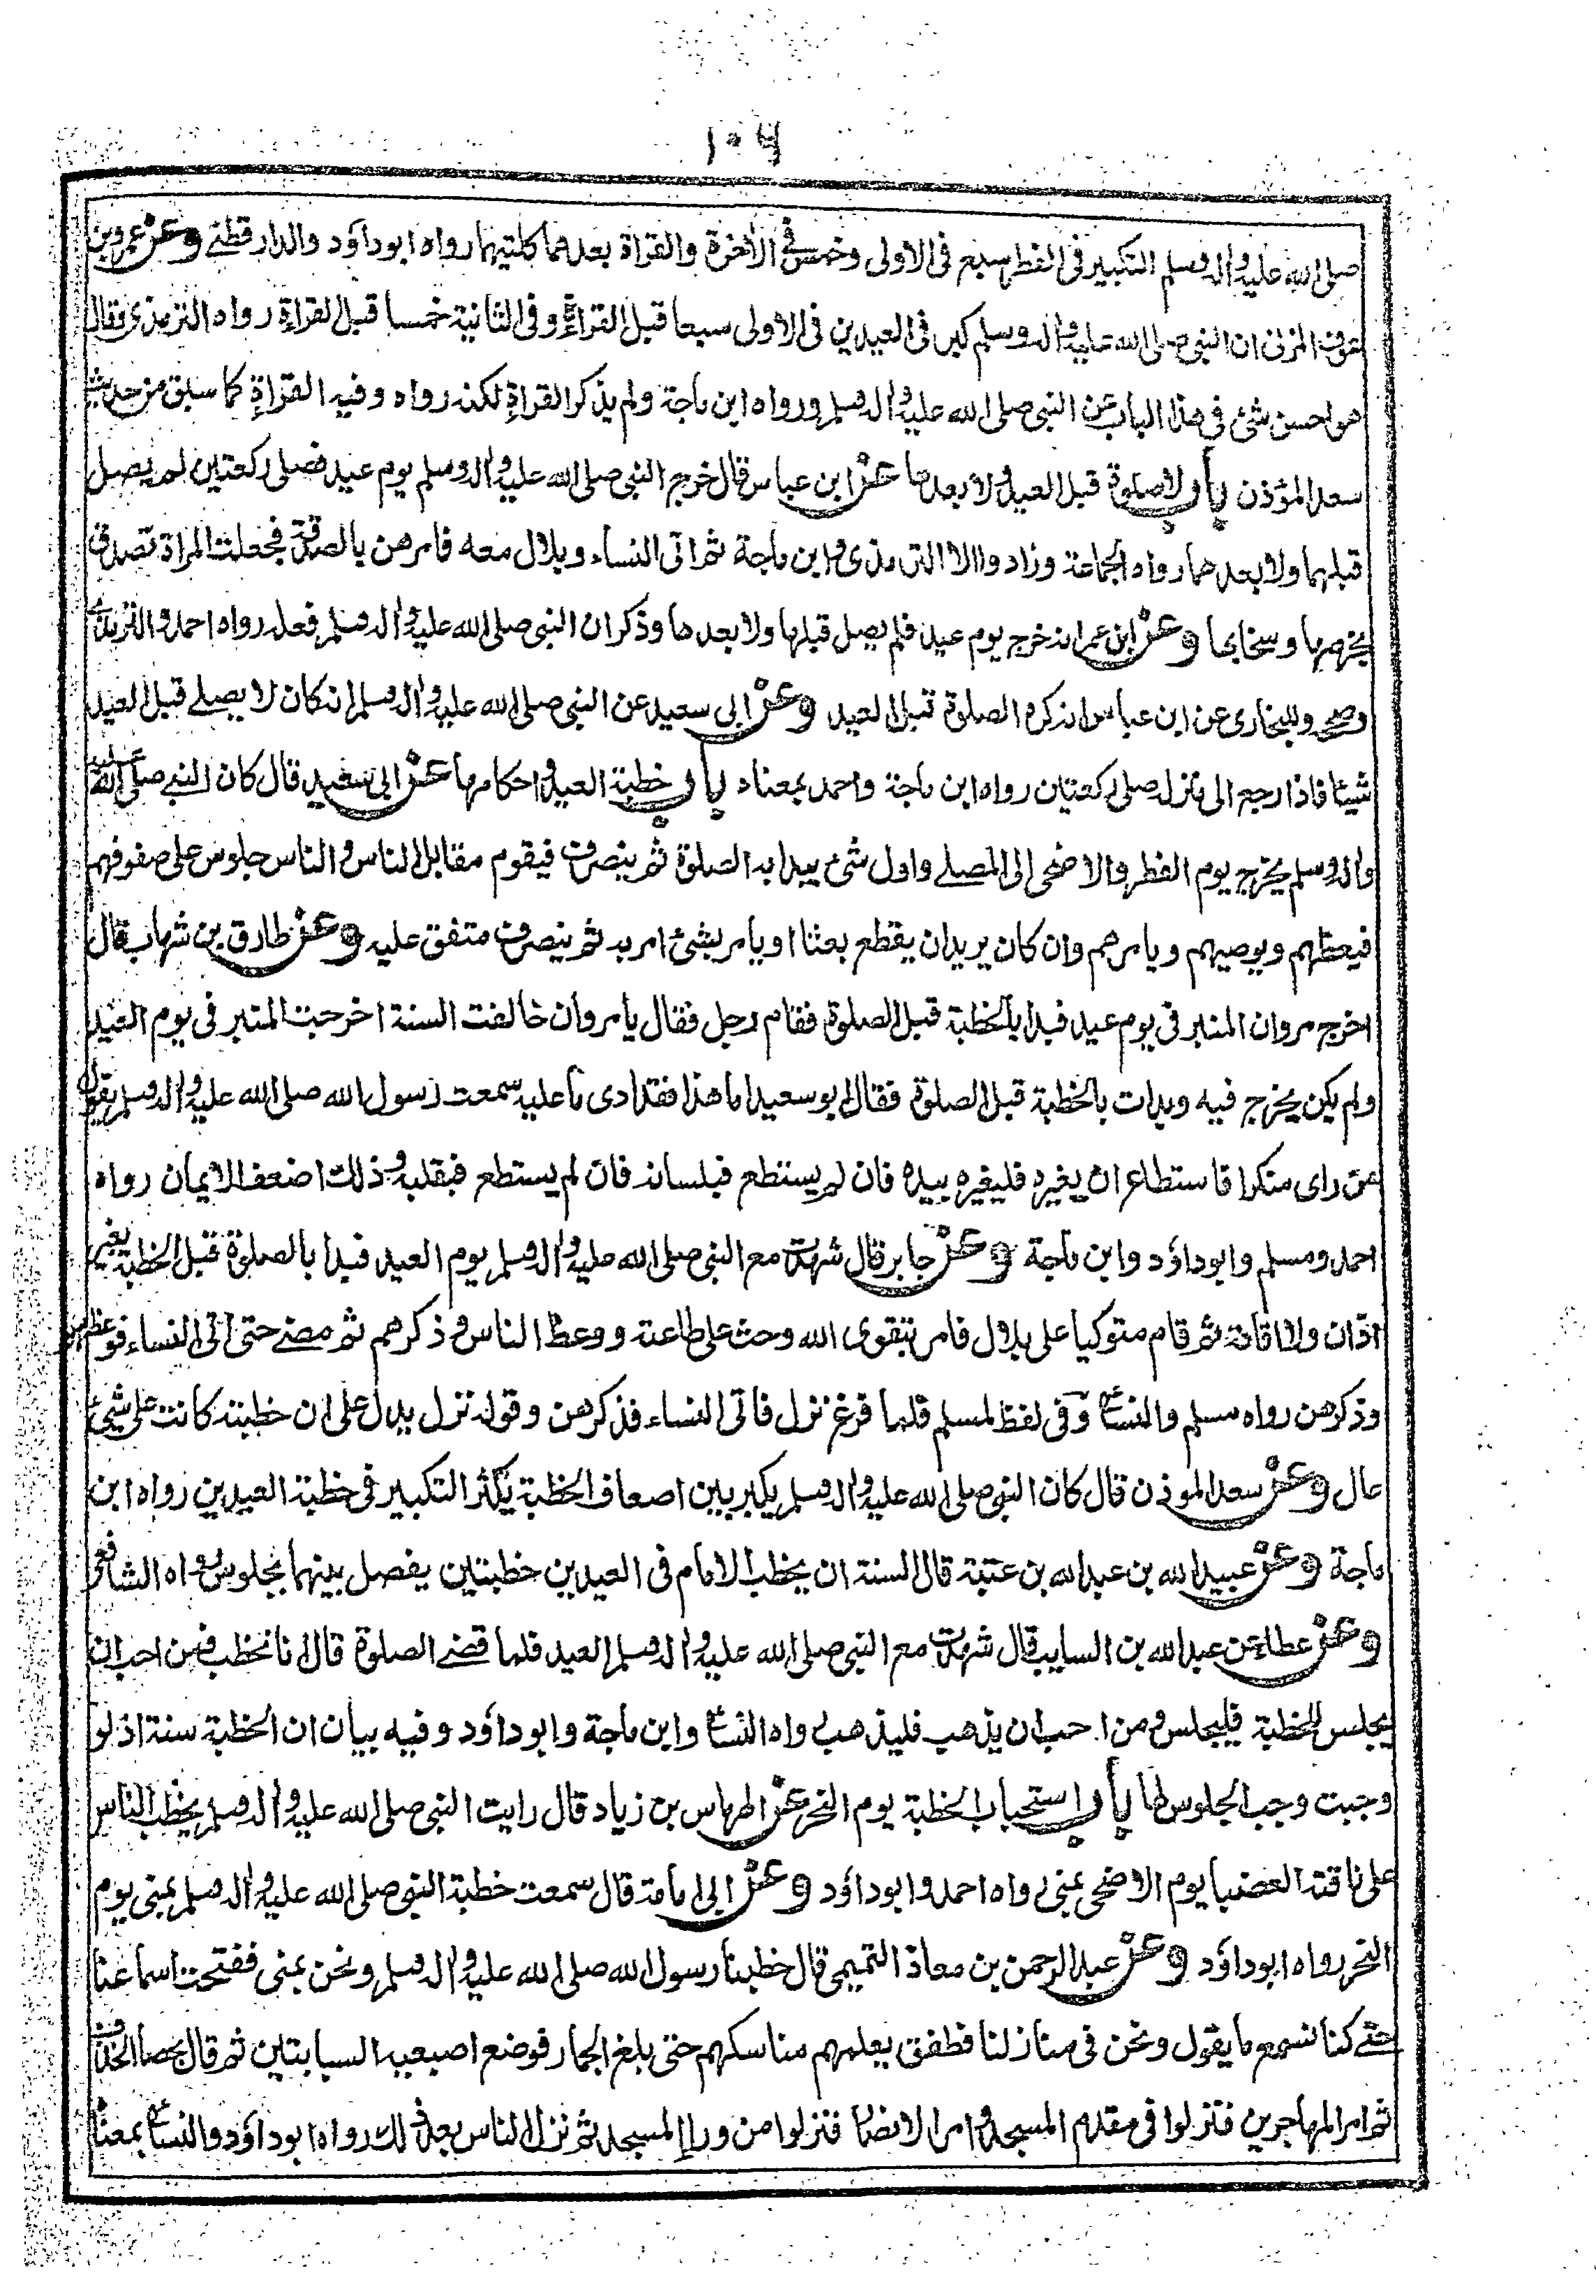 ١٠٦
صلى الله عليه واله وسلم التكبير فى الفطر سبع فى الاولى وخمس فى الاخرة والقراة بعدهما كلتيهما رواه ابوداؤد والدارقطنے وعن عمرو بن
عوف المزنى ان النبى صلى الله عليه واله وسلم كبر فى العيدين فى الاولى سبعا قبل القراءة وفى الثانية خمسا قبل القراءة رواه الترمذى وقال
هو احسن شئ فى هذا الباب عن النبى صلى الله عليه واله وسلم ورواه ابن ماجة ولم يذكر القراة لكنه رواه وفيه القراءة كما سبق من حديث
سعد المؤذن باب لا صلوة قبل العيد ولا بعدها عن ابن عباس قال خرج النبى صلى الله عليه واله وسلم يوم عيد فصلى ركعتين لم يصل
قبلهما ولا بعدهما رواه الجماعة وزادوا الا الترمذى وابن ماجة ثم اتى النساء وبلال معه فامرهن بالصدقة فجعلت المراة تصدق
بخرصها وسخابها وعن ابن عمر انه خرج يوم عيد فلم يصل قبلها ولا بعدها وذكر ان النبى صلى الله عليه واله وسلم فعله رواه احمد والترمذى
وصححه وللبخارى عن ابن عباس انه كره الصلوة قبل العيد وعن ابى سعيد عن النبى صلى الله عليه واله وسلم انه كان لا يصلے قبل العيد
شيئا فاذا رجع الى منزله صلى ركعتين رواه ابن ماجة واحمد بمعناه باب خطبة العيد واحكامها عن ابى سعيد قال كان النبے صلى الله عليه
واله وسلم يخرج يوم الفطر والاضحى الى المصلے واول شئ يبدا به الصلوة ثم ينصرف فيقوم مقابل الناس والناس جلوس على صفوفهم
فيعظهم ويوصيهم ويامرهم وان كان يريد ان يقطع بعثا او يامر بشئ امر به ثم ينصرف متفق عليه وعن طارق بن شهاب قال
اخرج مروان المنبر فى يوم عيد فبدا بالخطبة قبل الصلوة فقام رجل فقال يا مروان خالفت السنة اخرجت المنبر فى يوم العيد
ولم يكن يخرج فيه وبدات بالخطبة قبل الصلوة فقال ابو سعيد اما هذا فقد ادى ما عليه سمعت رسول الله صلى الله عليه واله وسلم يقول
من راى منكرا فاستطاع ان يغيره فليغيره بيده فان لم يستطع فبلسانه فان لم يستطع فبقلبه وذلك اضعف الايمان رواه
احمد ومسلم وابوداؤد وابن ماجة وعن جابر قال شهدت مع النبى صلى الله عليه واله وسلم يوم العيد فبدا بالصلوة قبل الخطبة بغير
اذان ولا اقامة ثم قام متوكيا على بلال فامر بتقوى الله وحث على طاعته ووعظ الناس وذكرهم ثم مضے حتى اتى النساء فوعظهن
وذكرهن رواه مسلم والنسائى وفى لفظ لمسلم فلما فرغ نزل فاتى النساء فذكرهن وقوله نزل يدل على ان خطبته كانت على شئ
عال وعن سعد الموذن قال كان النبى صلى الله عليه واله وسلم يكبر بين اصعاف الخطبة يكثر التكبير فى خطبة العيدين رواه ابن
ماجة وعن عبيد الله بن عبد الله بن عتبة قال السنة ان يخطب الامام فى العيدين خطبتين يفصل بينهما بجلوس رواه الشافعى
وعن عطاء عن عبد الله بن السايب قال شهدت مع النبى صلى الله عليه واله وسلم العيد فلما قضے الصلوة قال انا نخطب فمن احب ان
يجلس للخطبة فليجلس ومن احب ان يذهب فليذهب رواه النسائى وابن ماجة وابوداؤد وفيه بيان ان الخطبة سنة اذ لو
وجبت وجب الجلوس لها باب استحباب الخطبة يوم النحر عن الهرماس بن زياد قال رايت النبى صلى الله عليه واله وسلم يخطب الناس
على ناقته العضبا يوم الاضحى بمنى رواه احمد وابوداؤد وعن ابى امامة قال سمعت خطبة النبى صلى الله عليه واله وسلم بمنى يوم
النحر رواه ابوداؤد وعن عبد الرحمن بن معاذ التميمى قال خطبنا رسول الله صلى الله عليه واله وسلم ونحن بمنى ففتحت اسماعنا
حتے كنا نسمع ما يقول ونحن فى منازلنا فطفق يعلمهم مناسكهم حتى بلغ الجمار فوضع اصبعيه السبابتين ثم قال بحصا الخذف
ثم امر المهاجرين فنزلوا فى مقدم المسجد وامر الانصار فنزلوا من ورا المسجد ثم نزل الناس بعد ذلك رواه ابوداؤد والنسائى بمعناه